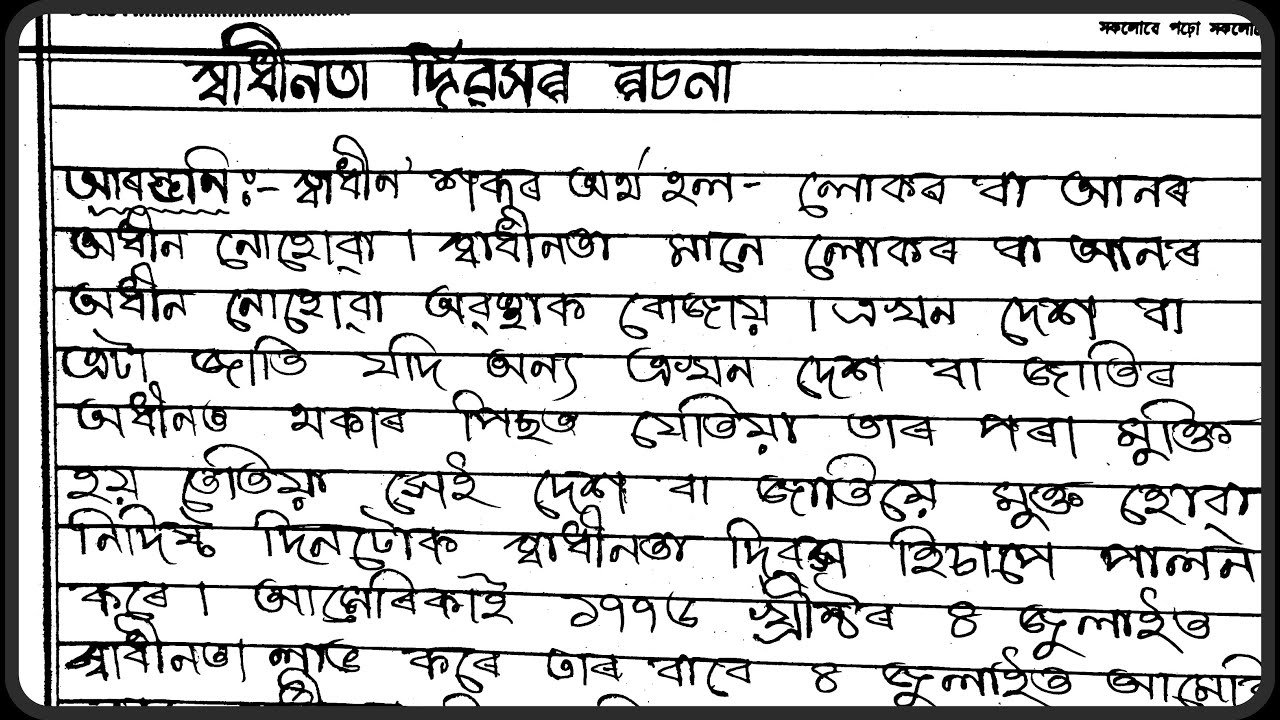 সকলোৱে পঢ়ো সকলো
স্বাধীনতা দিৱসৰ ৰচনা
আৰম্ভনি :- স্বাধীন শব্দৰ অৰ্থ হল - লোকৰ বা আনৰ
অধীন নোহোৱা । স্বাধীনতা মানে লোকৰ বা আনৰ
অধীন নোহোৱা অৱস্থাক বোজায় । এখন দেশ বা
এটা জাতি যদি অন্য এখন দেশ বা জাতিৰ
অধীনত থকাৰ পিছত যেতিয়া তাৰ পৰা মুক্তি
হয় তেতিয়া সেই দেশ বা জাতিয়ে মুক্ত হোৱা
নিদিষ্ট দিনটোক স্বাধীনতা দিৱস হিচাপে পালন
কৰে । আমেৰিকাই ১৭৭৬ খ্ৰীষ্টৰ ৪ জুলাইত
স্বাধীনতা লাভ কৰে তাৰ বাবে ৪ জুলাইত আমেৰি